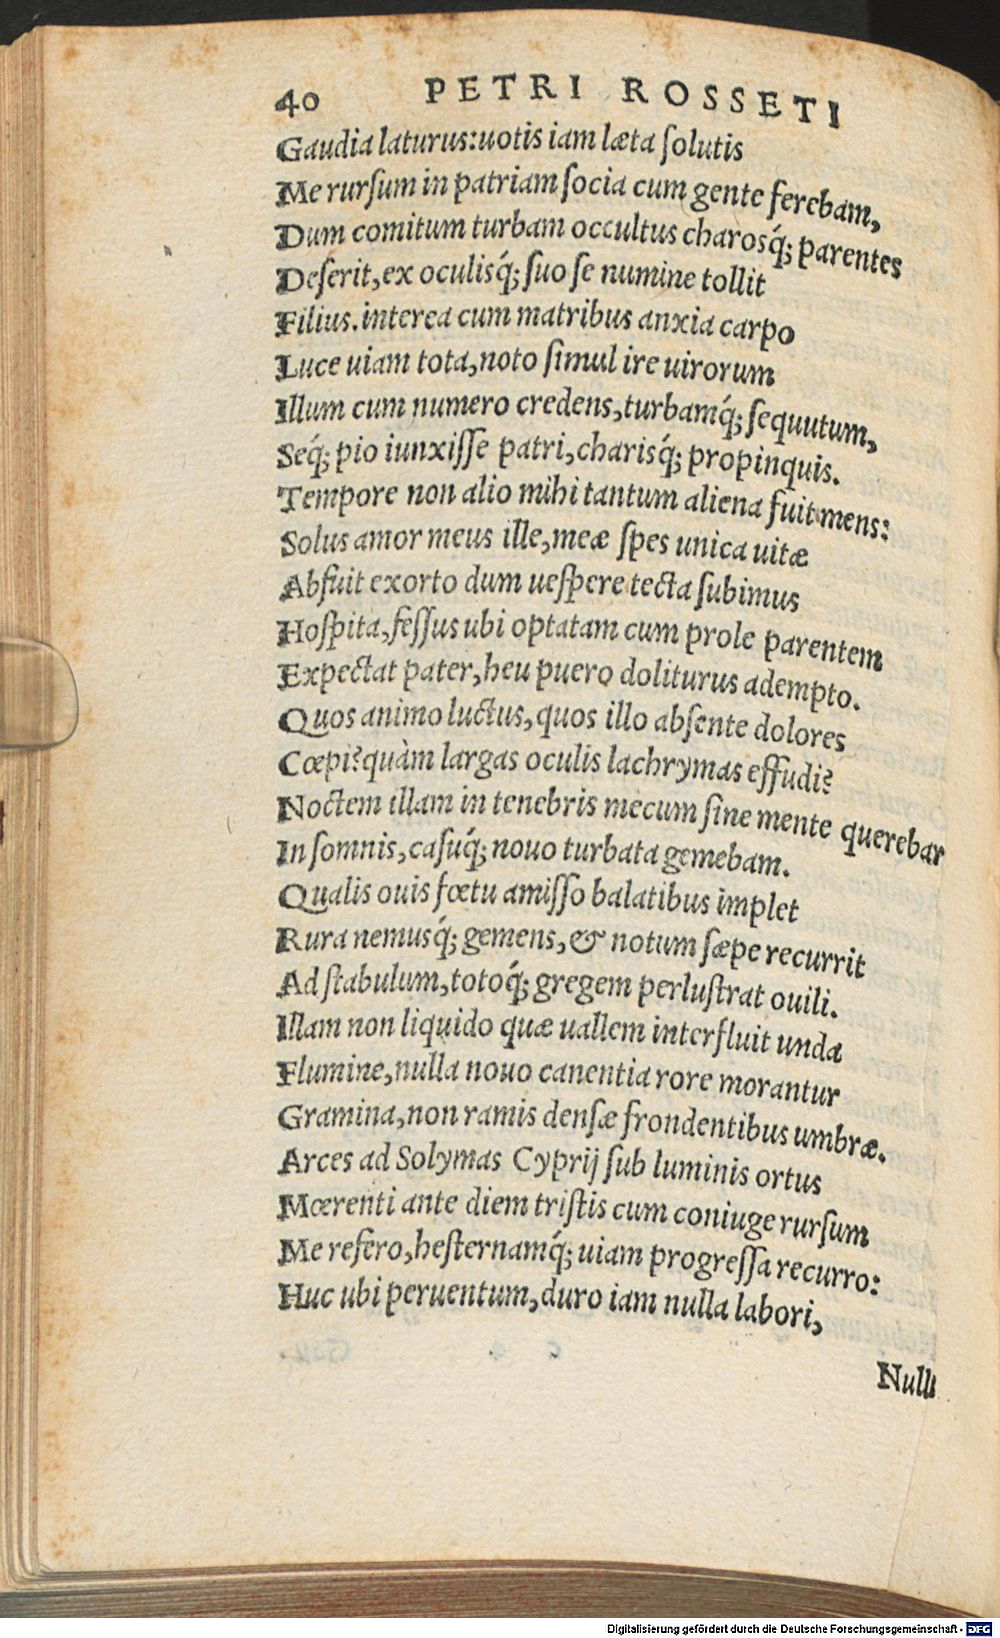 40 PETRI ROSSETI
Gaudia laturus:uotis iam læta ſolutis
Me rurſum in patriam ſocia cum gente ferebam,
Dum comitum turbam occultus charosq́; parentes
Deſerit,ex oculisq́; ſuo ſe numine tollit
Filius.interea cum matribus anxia carpo
Luce uiam tota,noto ſimul ire uirorum
Illum cum numero credens,turbamq́; ſequutum,
Seq́; pio iunxiſſe patri,charisq́; propinquis.
Tempore non alio mihi tantum aliena fuit mens:
Solus amor meus ille,meæ ſpes unica uitæ
Abfuit exorto dum ueſpere tecta ſubimus
Hoſpita,feſſus ubi optatam cum prole parentem
Expectat pater,heu puero doliturus adempto.
Quos animo luctus,quos illo abſente dolores
Cœpi?quàm largas oculis lachrymas effudi?
Noctem illam in tenebris mecum ſine mente querebar
In ſomnis,caſuq́; nouo turbata gemebam.
Qualis ouis fœtu amiſſo balatibus implet
Rura nemusq́; gemens,& notum ſæpe recurrit
Ad ſtabulum,totoq́; gregem perluſtrat ouili.
Illam non liquido quæ uallem interfluit unda
Flumine,nulla nouo canentia rore morantur
Gramina,non ramis denſæ frondentibus umbræ.
Arces ad Solymas Cyprij ſub luminis ortus
Mœrenti ante diem triſtis cum coniuge rurſum
Me refero,heſternamq́; uiam progreſſa recurro:
Huc ubi peruentum,duro iam nulla labori,
Nulli
Digitalisierung gefördert durch die Deutsche Forschungsgemeinschaft - DFG